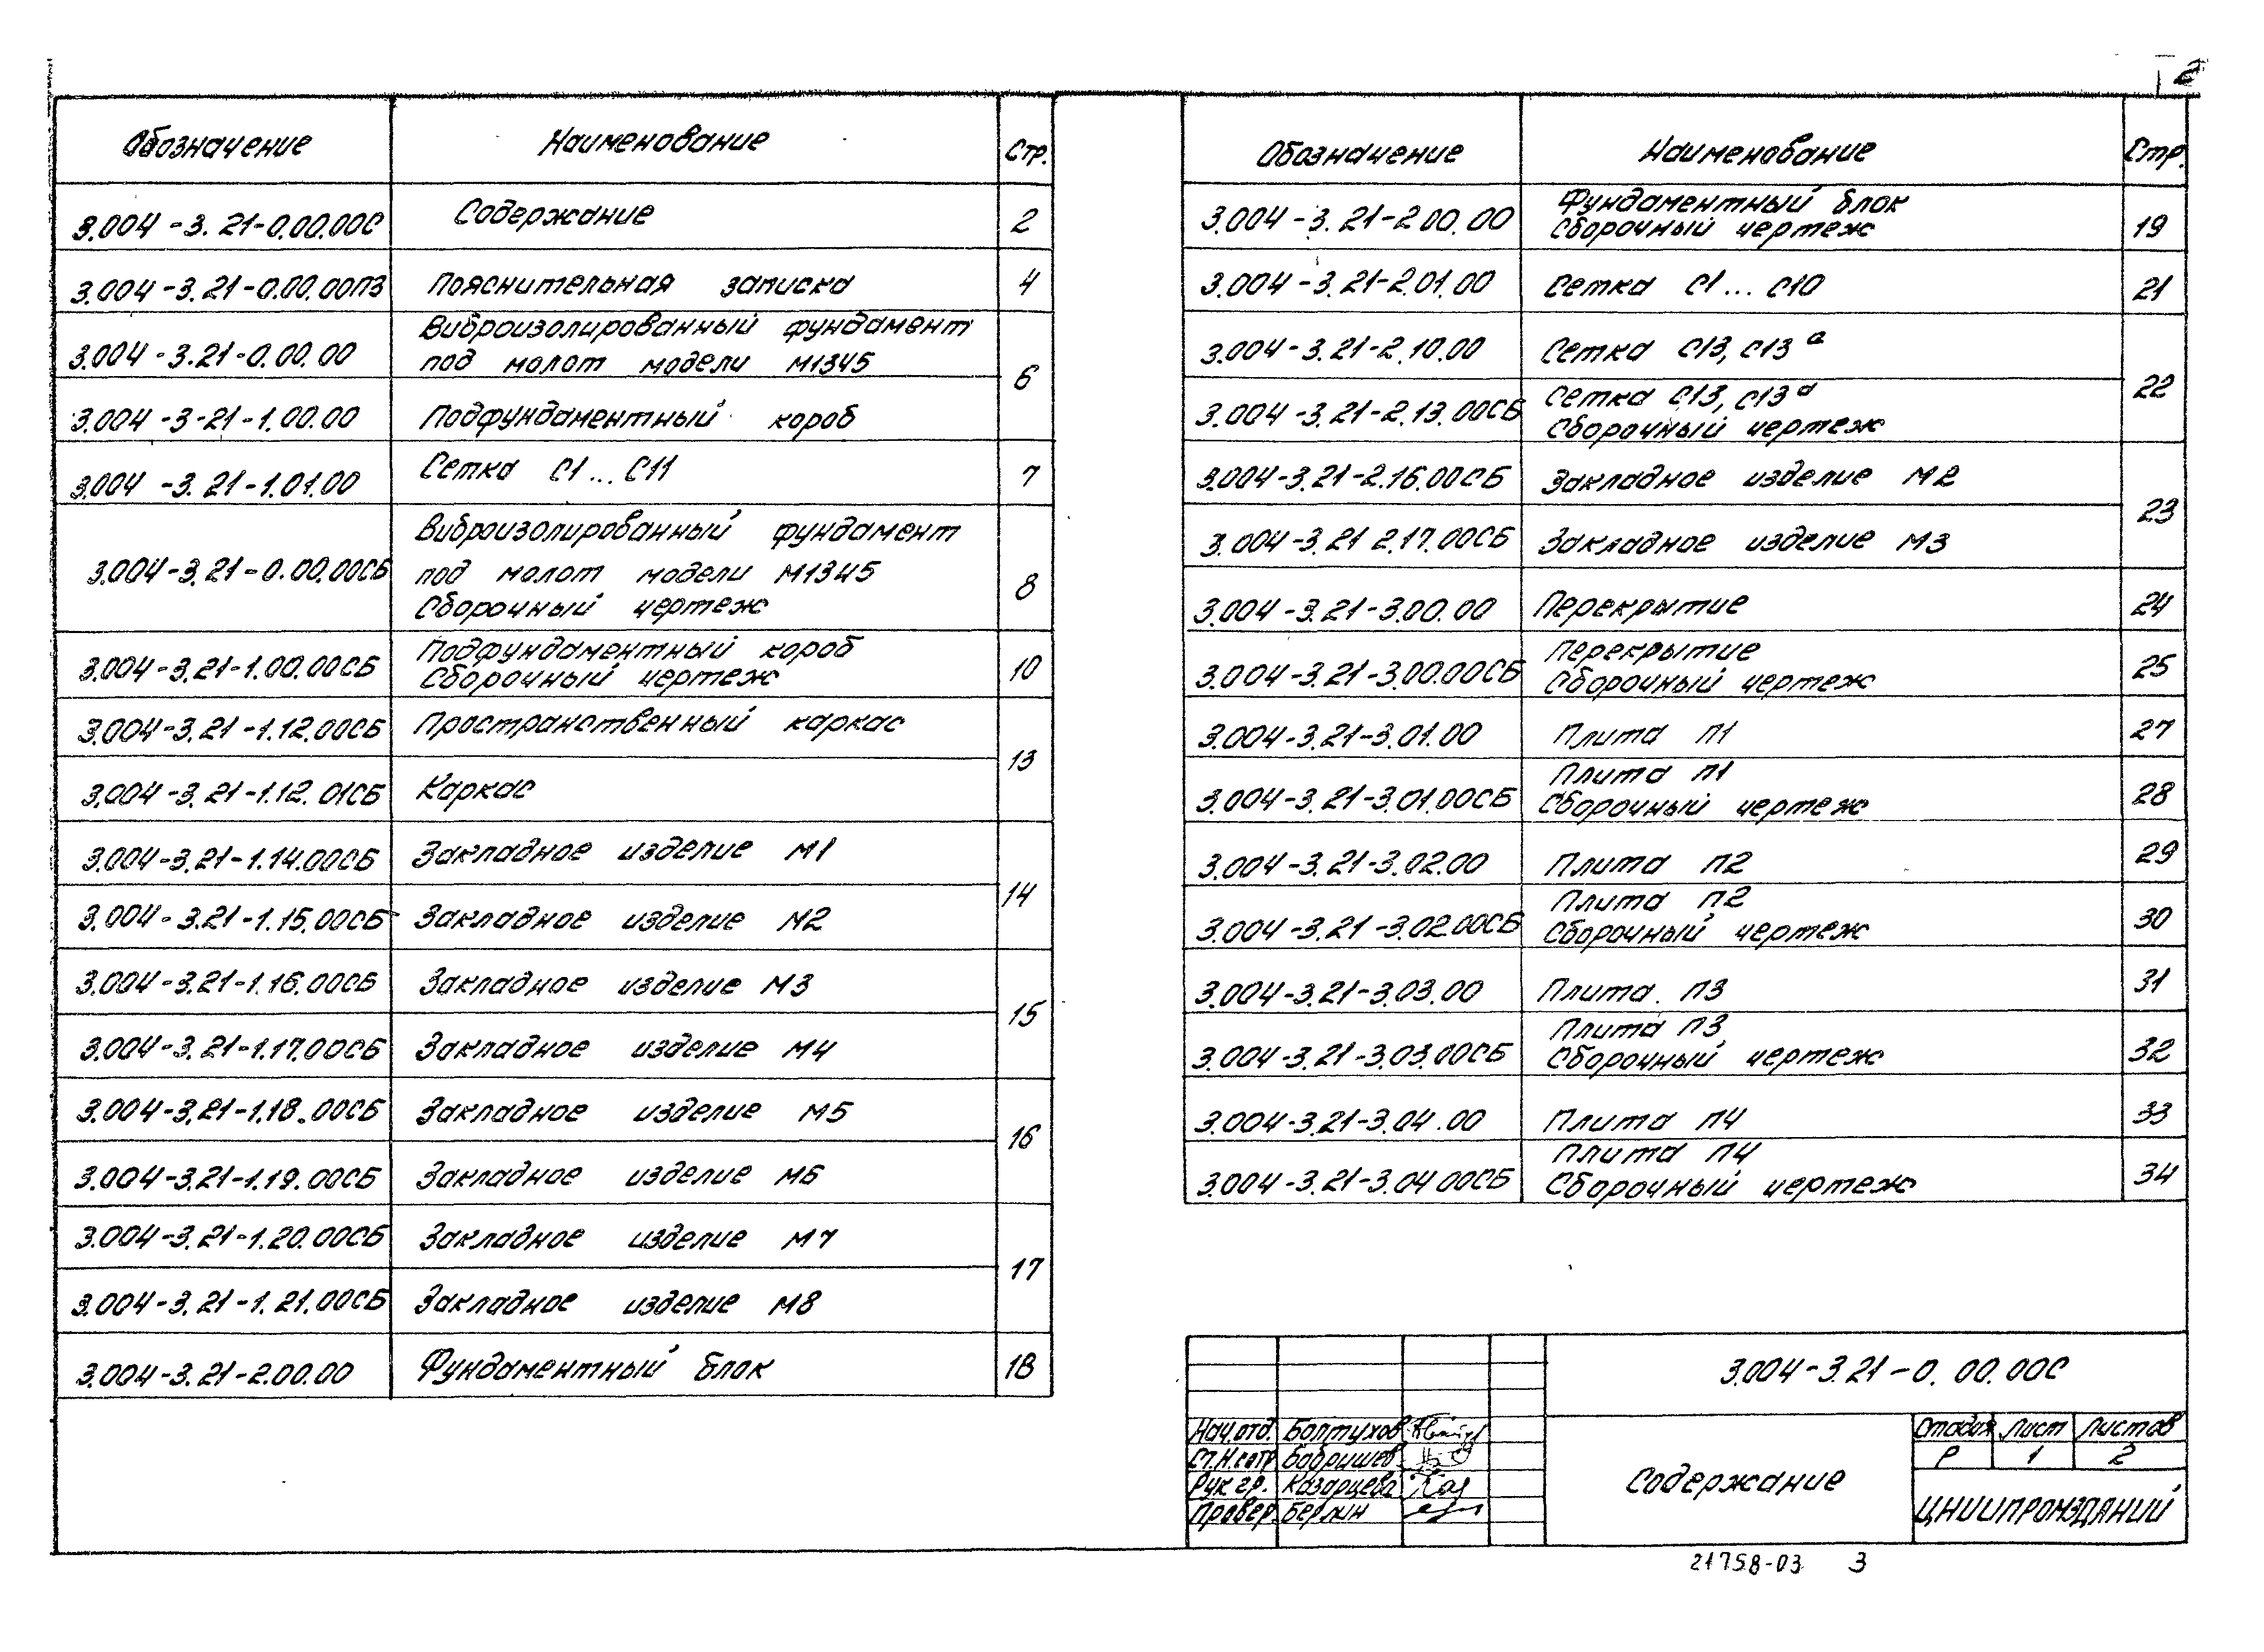 2
Обозначение Наименование Стр.
3.004-3.21-0.00.00С Содержание 2
3.004-3.21-0.00.00ПЗ Пояснительная записка 4
3.004-3.21-0.00.00 Виброизолированный фундамент
под молот модели М1345 6
3.004-3-21-1.00.00 Подфундаментный короб
3.004-3.21-1.01.00 Сетка С1...С11 7
3.004-3.21-0.00.00СБ Виброизолированный фундамент
под молот модели М1345
Сборочный чертеж 8
3.004-3.21-1.00.00СБ Подфундаментный короб
Сборочный чертеж 10
3.004-3.21-1.12.00СБ Пространственный каркас
13
3.004-3.21-1.12.01СБ Каркас
3.004-3.21-1.14.00СБ Закладное изделие М1
14
3.004-3.21-1.15.00СБ Закладное изделие М2
3.004-3.21-1.16.00СБ Закладное изделие М3
15
3.004-3.21-1.17.00СБ Закладное изделие М4
3.004-3.21-1.18.00СБ Закладное изделие М5
16
3.004-3.21-1.19.00СБ Закладное изделие М6
3.004-3.21-1.20.00СБ Закладное изделие М7
17
3.004-3.21-1.21.00СБ Закладное изделие М8
3.004-3.21-2.00.00 Фундаментный блок 18
Обозначение Наименование Стр.
3.004-3.21-2.00.00 Фундаментный блок
Сборочный чертеж 19
3.004-3.21-2.01.00 Сетка С1...С10 21
3.004-3.21-2.10.00 Сетка С13, С13а
22
3.004-3.21-2.13.00СБ Сетка С13, С13а
Сборочный чертеж
3.004-3.21-2.16.00СБ Закладное изделие М2
23
3.004-3.21 2.17.00СБ Закладное изделие М3
3.004-3.21-3.00.00 Перекрытие 24
3.004-3.21-3.00.00СБ Перекрытие
Сборочный чертеж 25
3.004-3.21-3.01.00 Плита П1 27
3.004-3.21-3.01.00СБ Плита П1
Сборочный чертеж 28
3.004-3.21-3.02.00 Плита П2 29
3.004-3.21-3.02.00СБ Плита П2
Сборочный чертеж 30
3.004-3.21-3.03.00 Плита П3 31
3.004-3.21-3.03.00СБ Плита П3
Сборочный чертеж 32
3.004-3.21-3.04.00 Плита П4 33
3.004-3.21-3.04 00СБ Плита П4
Сборочный чертеж 34
3.004-3.21-0.00.00С
Нач.отд. Болтухов
Ст.н.сотр Бабрышев
Рук.гр. Казарцева
Провер. Берлин
Содержание
Стадия Лист Листов
Р 1 2
ЦНИИПРОМЗДАНИЙ
21758-03 3